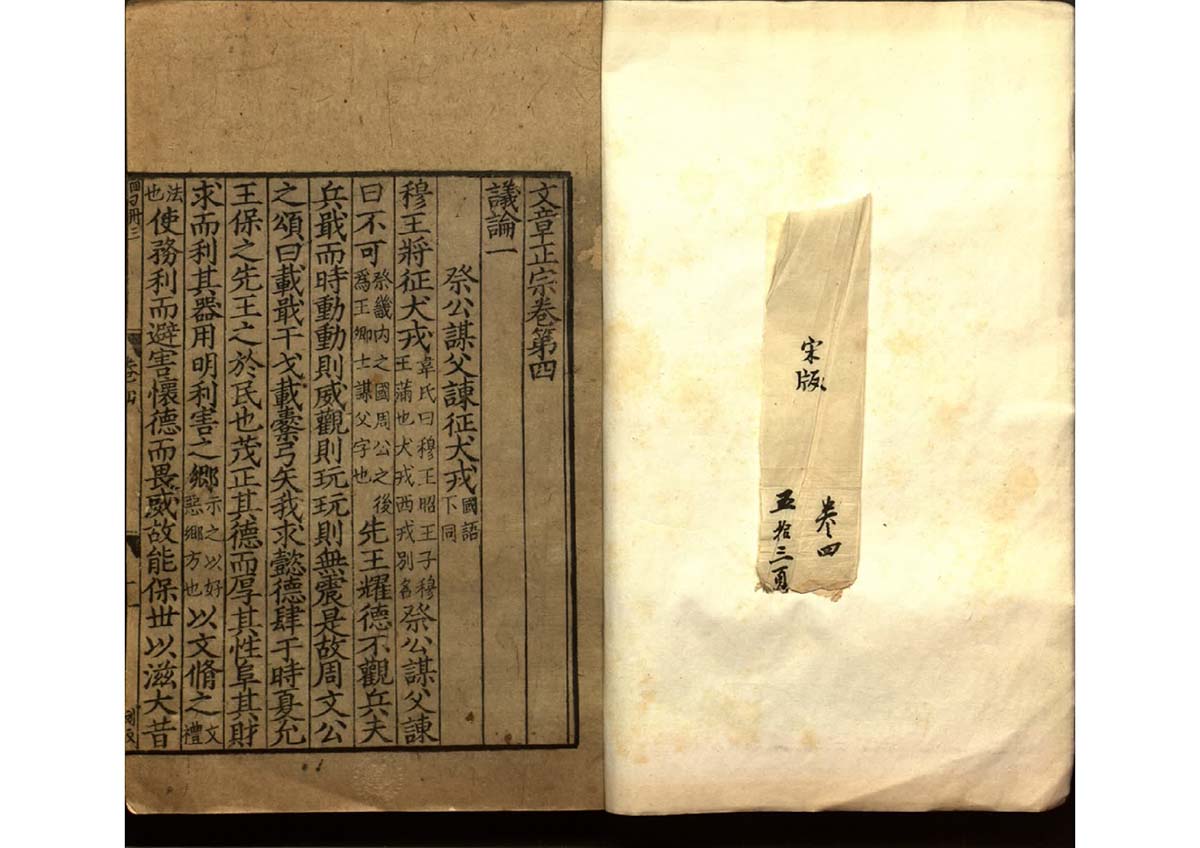 宋版
卷四
五拾三頁
文章正宗卷第四
議論一
祭公謀父諫征犬戎國語下同
穆王將征犬戎韋氏曰穆王昭王子穆王蒲也犬戎西戎別名祭公謀父諫
曰不可祭畿內之國周公之後爲王卿士謀父字也先王耀德不觀兵夫
兵戢而時動動則威觀則玩玩則無震是故周文公
之頌曰載戢干戈載櫜弓矢我求懿德肆于時夏允
王保之先王之於民也茂正其德而厚其性阜其財
求而利其器用明利害之鄉示之以好惡鄉方也以文脩之文禮
法也使務利而避害懷德而畏威故能保丗以滋大昔
卷四